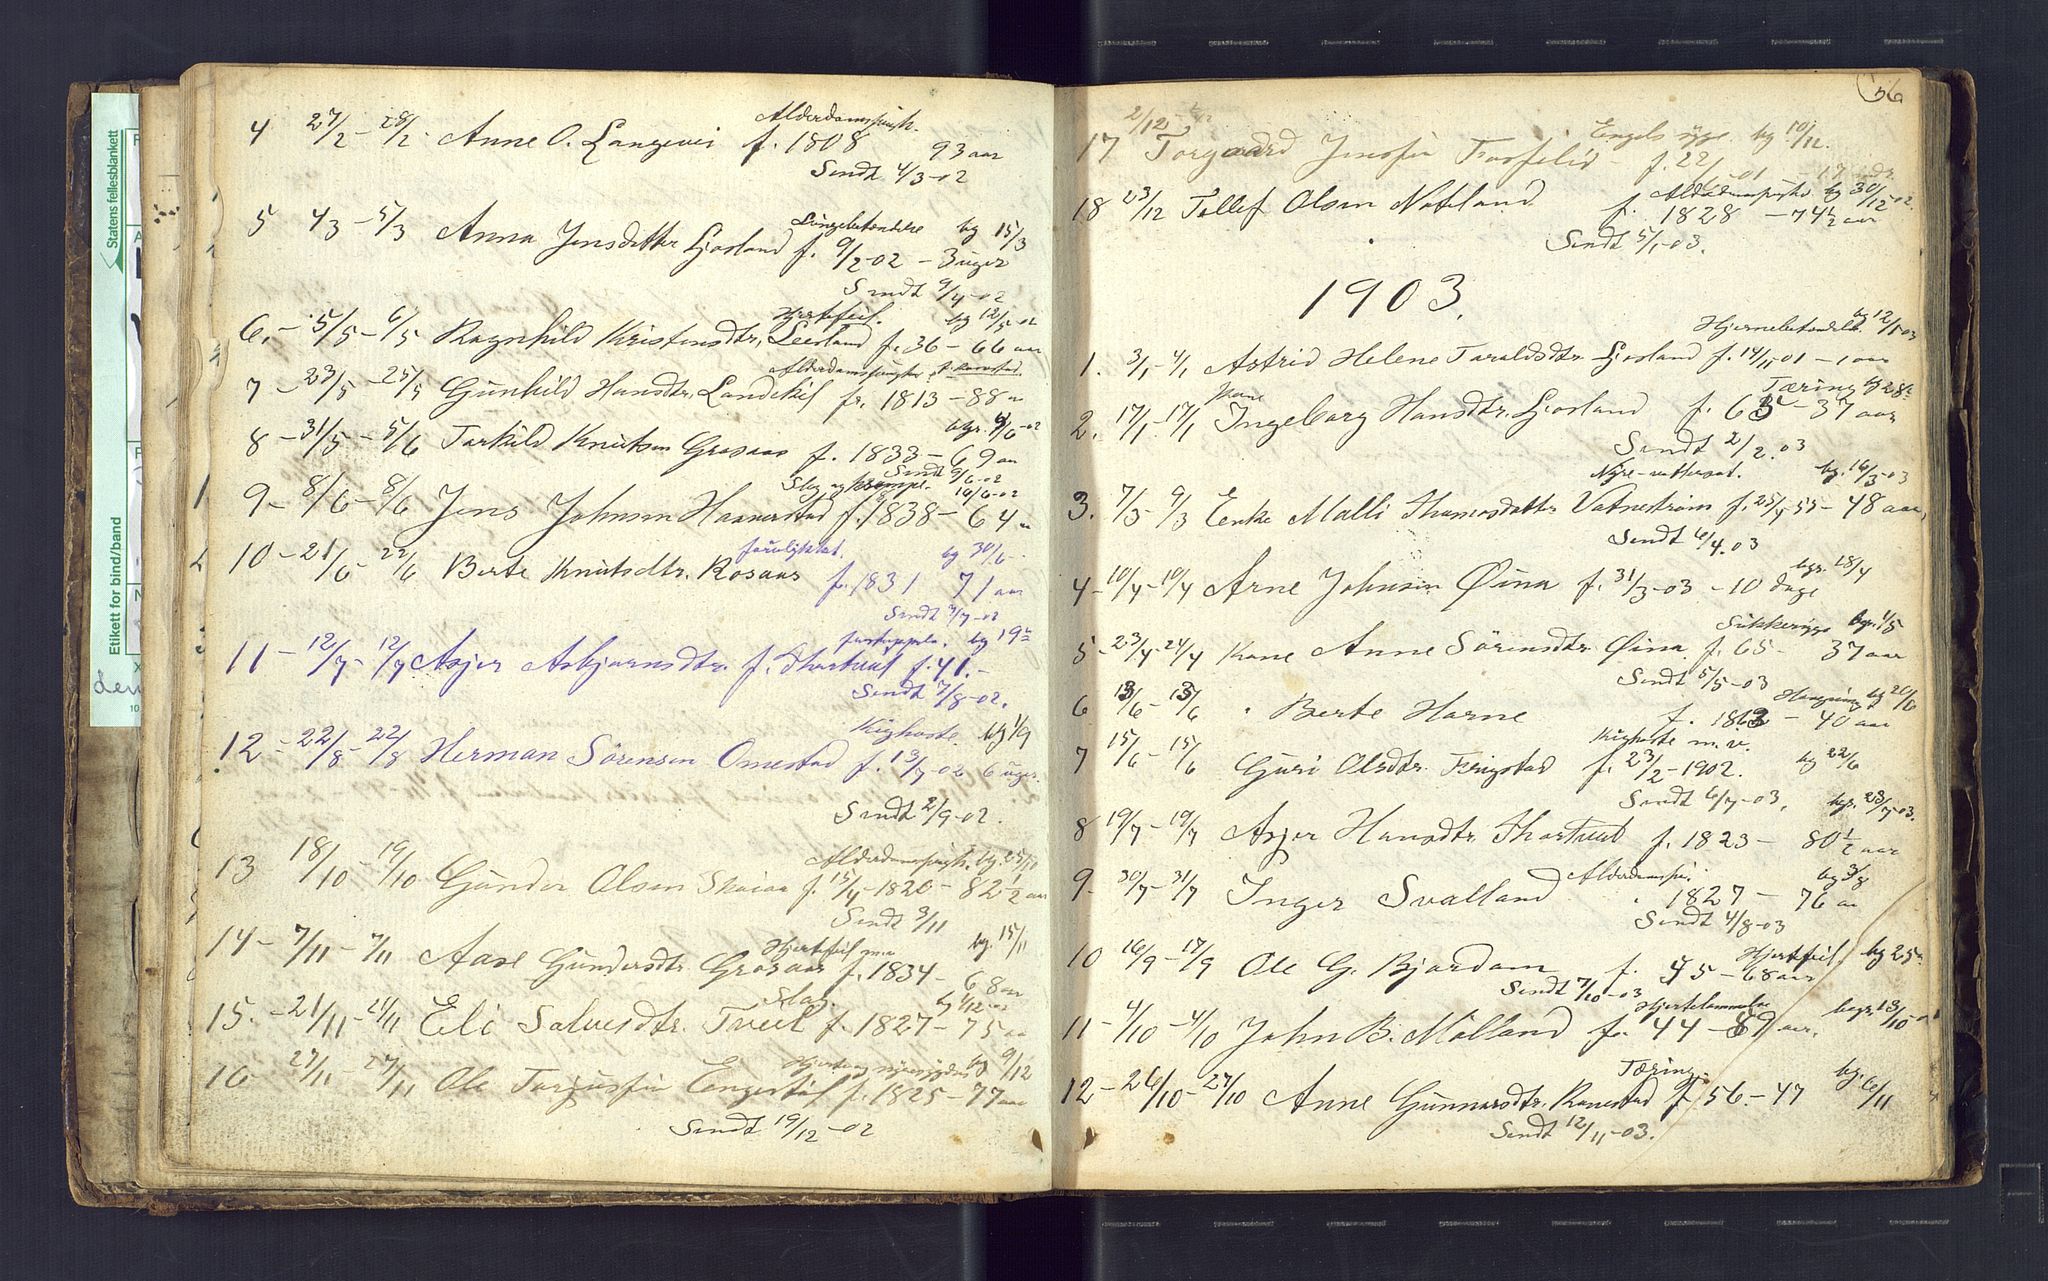 Alderdomssvagh.
4 27/2 - 28/2 Anne O. Langevei f. 1808 93 aar
Sendt 4/3-02
Lungebetændelse bg 15/3
5 4/3 - 5/3 Anna Jensdatter Ljosland f. 9/2-02 - 3 uger
Sendt 9/4-02
Hjertefeil. bg 12/5-02
6. - 5/5 - 6/5 Ragnhild Kristensdtr. Leerland f. 36 - 66 aar
Alderdomssvaghed
7 - 23/5 - 25/5 Gunhild Hansdtr. Landekil f. 1813 - 88
bgr. 9/6-02
8 - 31/5 - 5/6 Tarkild Knutsen Grosaas f. 1833 - 69 aar
Sendt 9/6-02
Slag og krampe. 16/6-02
9 - 8/6 - 8/6 Jens Johnsen Haaverstad f. 1838 - 64
forulykket. bg 30/6
10 - 21/6 - 22/6 Berte Knutsdtr. Rosaas f. 1831 71 aar
Sendt 3/7-02
bg 19de
11 - 12/7 - 12/7 Asjer Asbjørnsdtr. f. Thortveit f. 41. -
Sendt 7/8-02.
Kighoste. bg 1/9
12 - 22/8 - 22/8 Herman Sørensen Omestad f. 13/7-02 6 uger.
Sendt 2/9-02.
Alderdomssvagh. bg. 25/10
13 18/10 - 19/10 Gunder Olsen Skaiaa f. 15/4-1820 - 82 1/2 aar
Sendt 3/11
Hjertefeil m.m bg. 15/11
14 - 7/11 - 7/11 Aase Gundersdtr. Grosaas f. 1834 - 68 aar
Slag. bg 1/12-02
15. - 21/11 - 21/11 Eli Salvesdtr. Tveit f. 1827 - 75 aa
Hjerte og nyresygdom bg 9/12
16 - 27/11 - 27/11 Ole Torjussen Engestøl f. 1825 - 77 aar
Sendt 19/12-02
56
2/12
Engelsk syge. bg 10/12.
17 Torgaard Jensen f. 22/
Alderdomssvaghed bg 30/12-02.
18 23/12 Tellef Olsen Nateland f. 1828 - 74 1/2 aar
Sendt 5/1-03.
1903.
Hjernebetændelse bg 12/1-03
1. 3/1 - 4/1 Astrid Helene Taraldsdtr. Ljosland f. 14/11-01 - 1 aar
Kone Tæring bg 28de
2. 17/1 - 17/1 Ingeborg Hansdtr. Ljosland f. 65 - 37 aar
Sendt 2/2.03
Nyre-vattersot. bg. 16/3-03
3. 7/3 9/3 Enke Malli Thomasdatter Vatnestrøm f. 25/4-55 - 48 aar,
Sendt 6/4.03
bgr. 18/4
4 - 10/4 - 10/4 Arne Johnsen Øina f. 31/3-03 - 10 dage
Sukkersyge bgr. 1/5
5 - 23/4 - 24/4 Kone Anne Sørensdtr. Øina f. 65 - 37 aar
Sendt 5/5-03
bg 20/6
6 13/6 - 13/6 " Berte Horne f. 1863 - 40 aar
Kighoste m. v.
7 15/6 - 15/6 Guri Olsdtr. Frigstad f. 23/2-1902. bg 22/6
Sendt 6/7-03. bgr. 23/7-03.
8 19/7 - 19/7 Asjer Hansdtr. Thortveit f. 1823 - 80 1/2 aar
Alderdomssv. bg 3/8
9 - 30/7 - 31/7 Inger Svalland " 1827 - 76 aa
Sendt 4/8-03
Hjertfeil. bg 25de
10 16/9 - 17/9 Ole G. Bjordam f. 45 - 68 aar
Sendt 7/10-03
Hjertelammelse bgr. 13/10-03
11 - 4/10 - 4/10 John B. Mølland f. 44 - 59 aar.
Tæring. bg. 6/11
12 - 26/10 - 27/10 Anne Gunnarsdtr. Ranestad f. 56. - 47
Sendt 12/11-03.
Statens fellesblankett
Etikett for bind/band